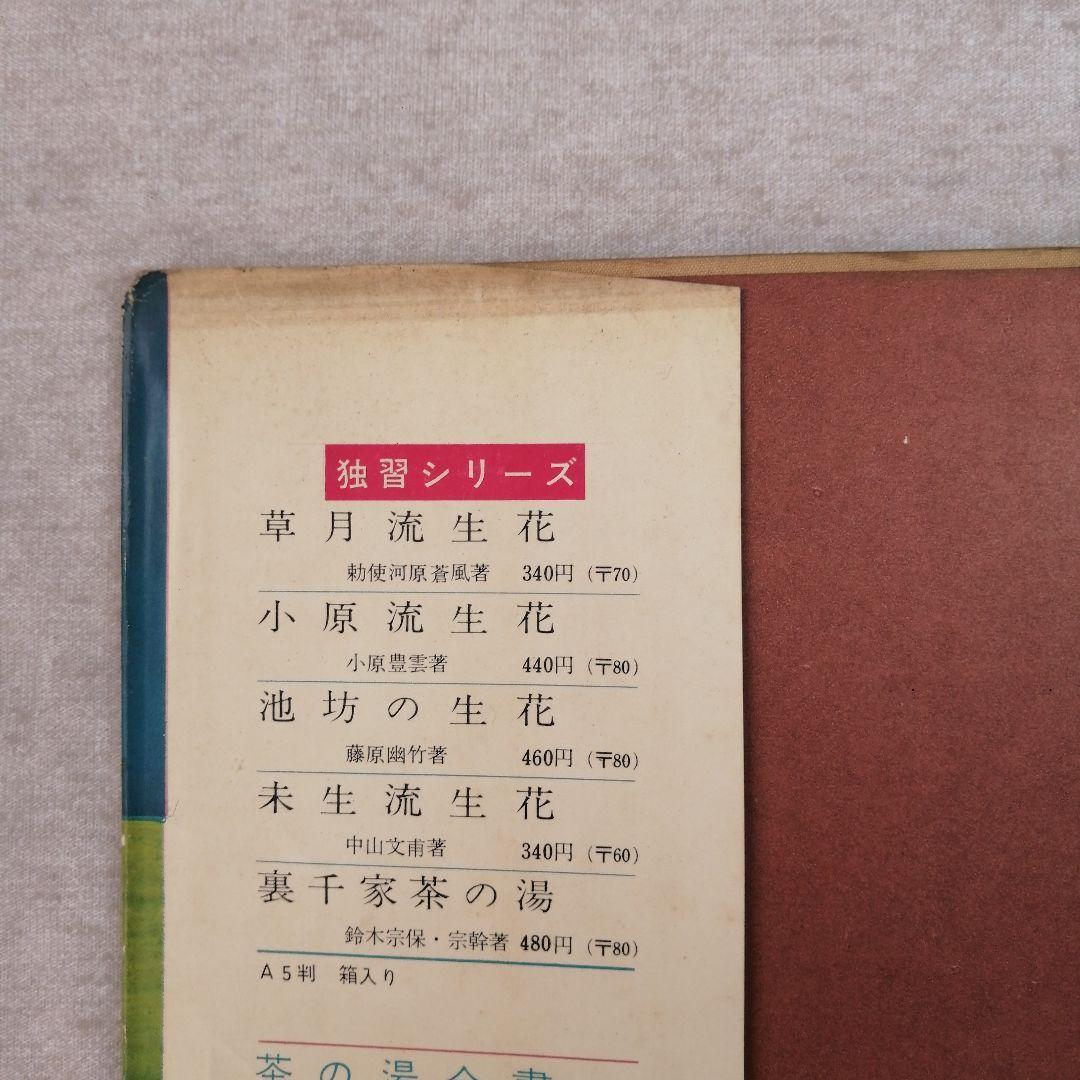 独習シリーズ
草月流生花
勅使河原蒼風著 340円(〒70)
小原流生花
小原豊雲著 440円(〒80)
池坊の生花
藤原幽竹著 460円(〒80)
未生流生花
中山文甫著 340円(〒60)
裏千家茶の湯
鈴木宗保・宗幹著 480円(〒80)
A5判 箱入り
茶の湯全書